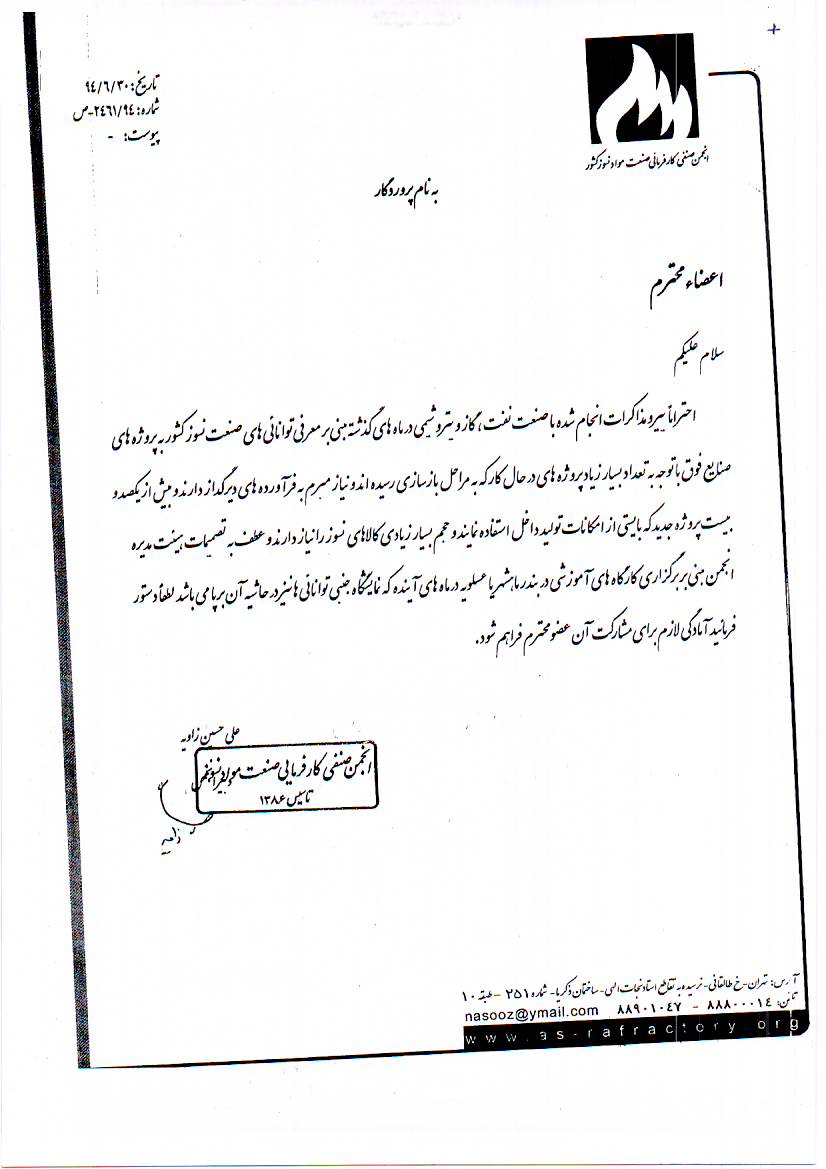 تاریخ: ۹۴/۶/۳۰
شماره: ۲۴۶۱/۹۴-ص
پیوست: -
انجمن صنفی کارفرمائی صنعت مواد نسوز کشور
به نام پروردگار
اعضاء محترم
سلام علیکم
احتراماً پیرو مذاکرات انجام شده با صنعت نفت، گاز و پتروشیمی در ماه های گذشته مبنی بر معرفی توانائی های صنعت نسوز کشور به پروژه های
صنایع فوق با توجه به تعداد بسیار زیاد پروژه های در حال کار که به مراحل بازسازی رسیده اند و نیاز مبرم به فرآورده های دیرگداز دارند و بیش از یکصد و
بیست پروژه جدید که بایستی از امکانات تولید داخل استفاده نمایند و حجم بسیار زیادی کالاهای نسوز را نیاز دارند و عطف به تصمیمات هیئت مدیره
انجمن مبنی بر برگزاری کارگاه های آموزشی در بندر ماهشهر یا عسلویه در ماه های آینده که نمایشگاه جنبی توانائی ها نیز در حاشیه آن برپا می باشد لطفاً دستور
فرمائید آمادگی لازم برای مشارکت آن عضو محترم فراهم شود.
علی حسین زاویه
انجمن صنفی کارفرمایی صنعت مواد نسوز
تاسیس ۱۳۸۶
زاویه
آدرس: تهران- خ طالقانی- نرسیده به تقاطع استاد نجات الهی- ساختمان ذکریا- شماره ۲۵۱ - طبقه ۱۰
تلفن: ۸۸۸۰۰۰۱۴ - ۸۸۹۰۱۰۴۷ nasooz@ymail.com
www.as-rafractory.org